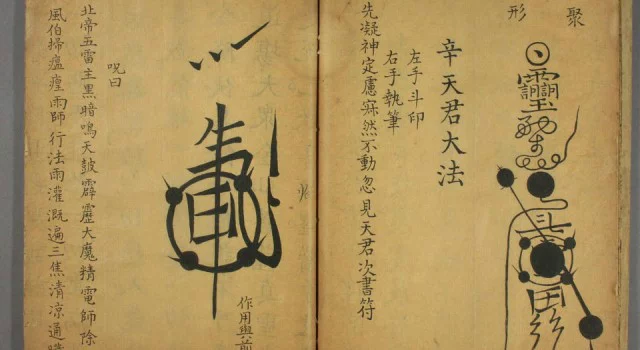 聚
形
辛天君大法
左手斗印
右手執筆
先凝神定慮寂然不動忽見天君次書符
作用與前
呪曰
北帝五雷主黑暗鳴天鼓霹靂大魔精電師除
風伯掃瘟㾮雨師行法雨灌溉遍三焦清涼通